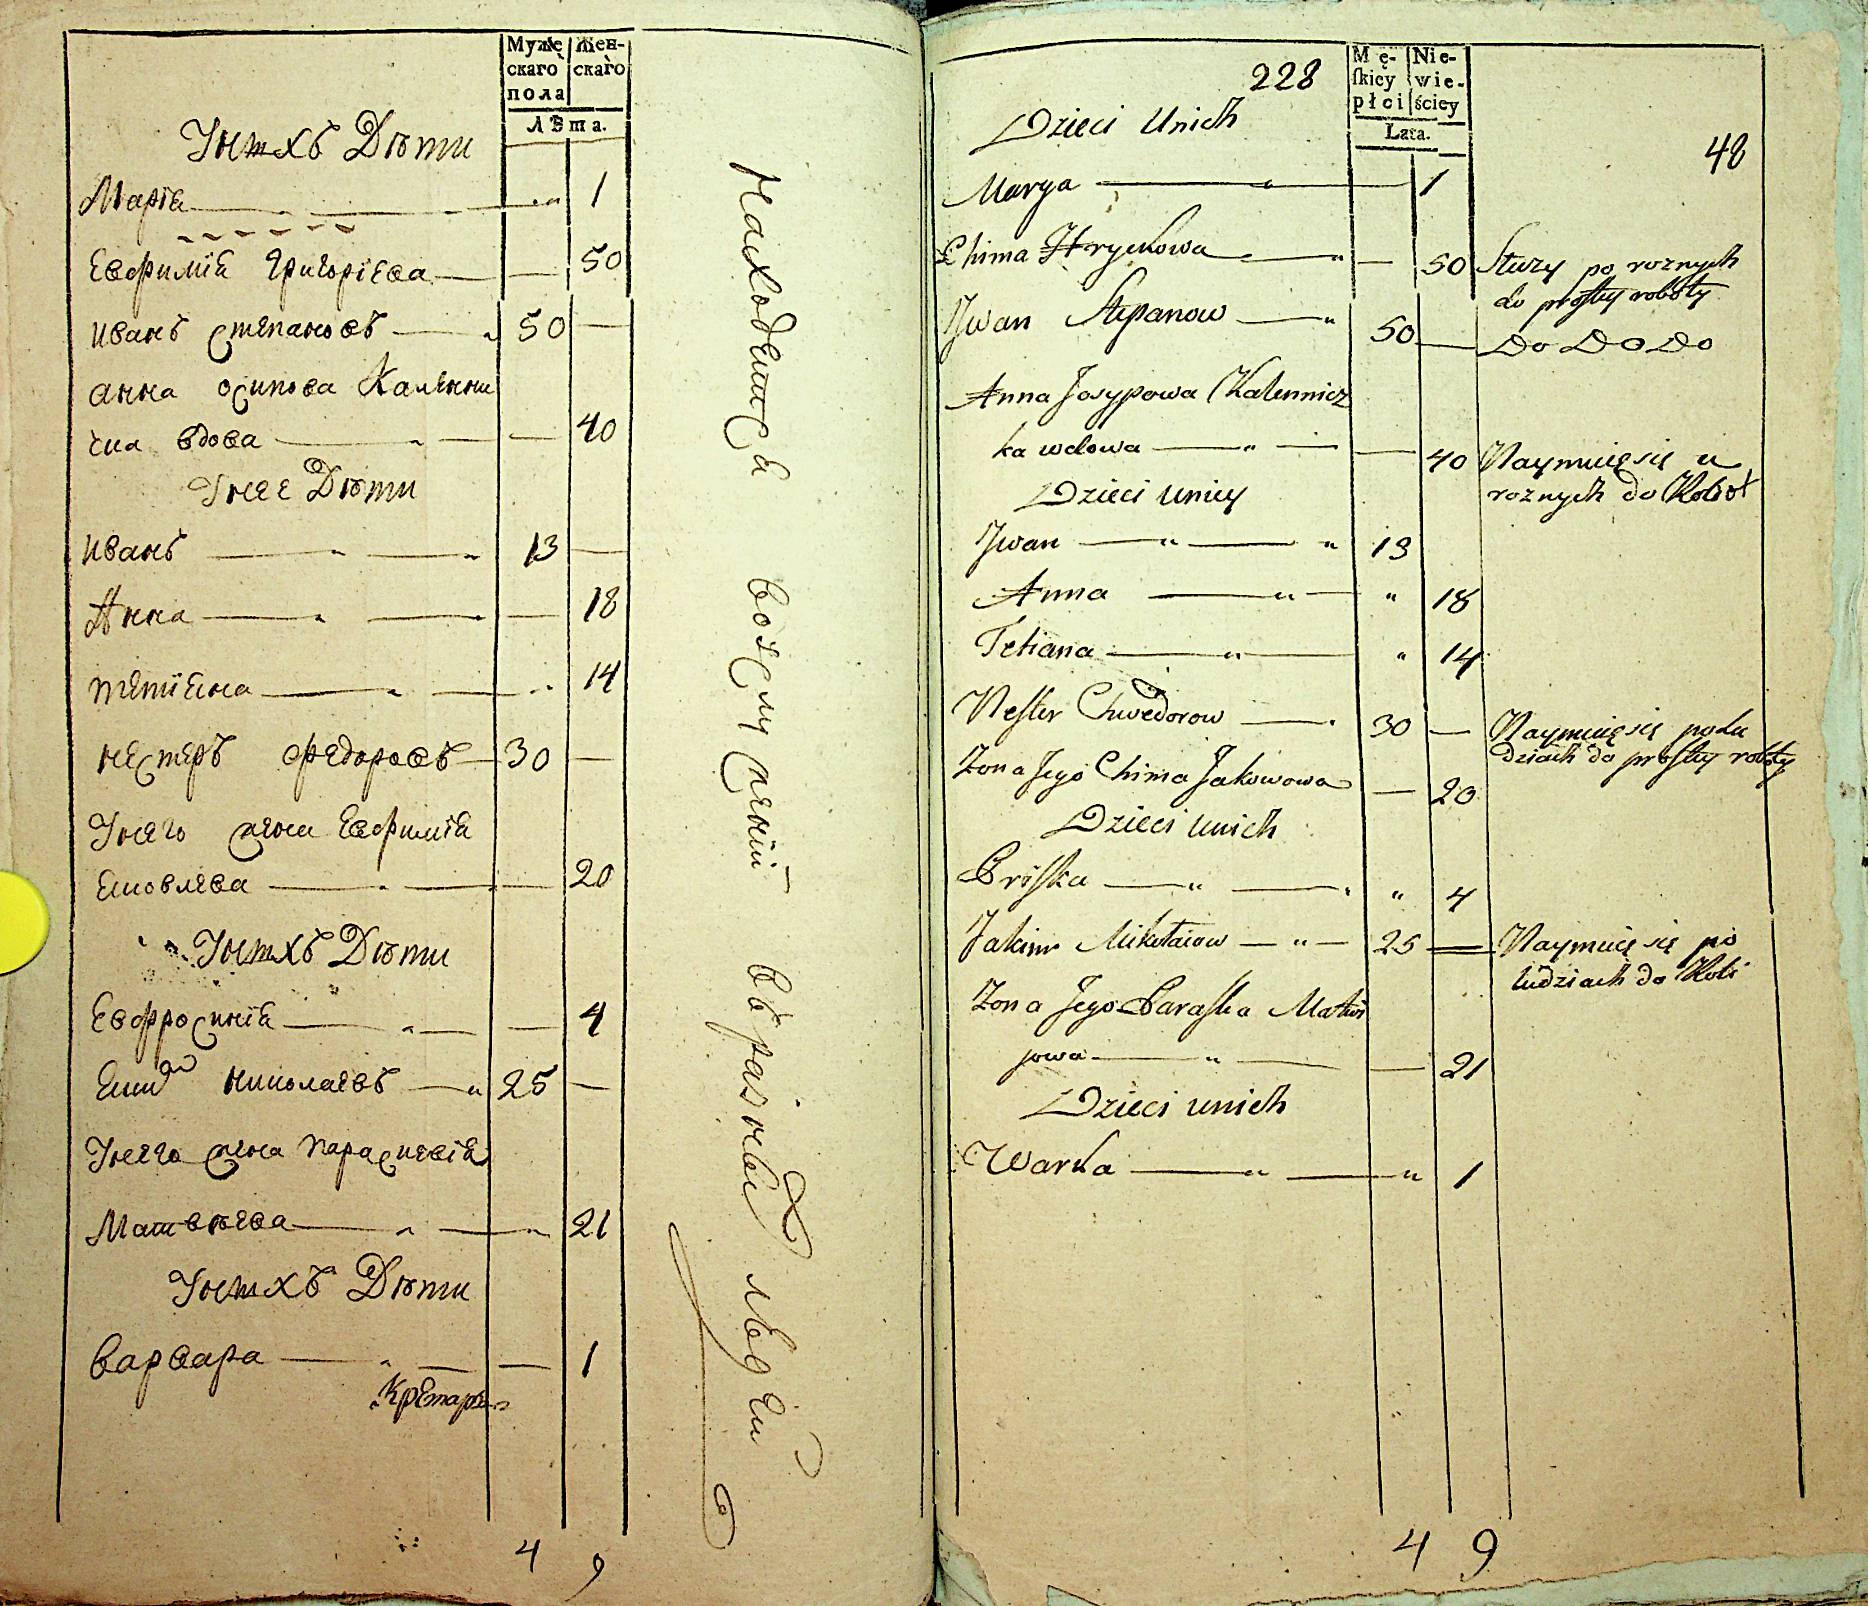 Муже
скаго
пола
Жен-
скаго
Лѣта.
У нихъ Дѣти
Марія 1
Евфимія Григоріева 50
Иванъ Степановъ 50
Анна Осипова Каленни
чка вдова 40
У нее Дѣти
Иванъ 13
Анна 18
Тетіяна 14
Нестеръ Федоровъ 30
У него жена Евфимія
Яковлева 20
У нихъ Дѣти
Евфросинія 4
Николаевъ 25
У него жена Параскевія
Матвѣева 21
У нихъ Дѣти
Варвара 1
4 9
Находятся во услуженіи въ разныхъ людей
228
Mę-
skiey
płci
Nie-
wie-
ściey
Lata.
48
Dzieci Unich
Marya 1
Chima Hryckowa 50 Służy po roznych
do prostey roboty
Jwan Stepanow 50 Do Do Do
Anna Josypowa Kalennicz
ka wdowa 40 Naymuię się u
roznych do Robot
Dzieci Uniey
Jwan 13
Anna 18
Tetiana 14
Nester Chwedorow 30 Naymuię się po lu
dziach do prostey roboty
Zona Jego Chima Jakowowa 20
Dzieci Unich
Priska 4
Jakim Mikołaiow 25 Naymuię się po
ludziach do Robo
Zona Jego Paraska Matwi
jowa 21
Dzieci unich
Warka 1
4 9